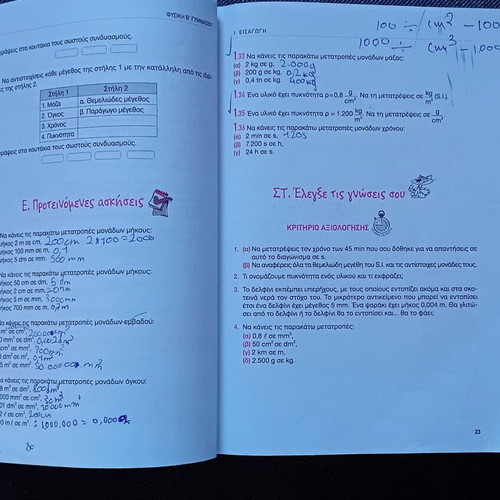 ΦΥΣΙΚΗ Β΄ ΓΥΜΝΑΣΙΟΥ
γράψεις στα κουτάκια τους σωστούς συνδυασμούς.
Να αντιστοιχίσεις κάθε μέγεθος της στήλης 1 με την κατάλληλη από τις ιδιό-
ες της στήλης 2.
Στήλη 1 Στήλη 2
1. Μάζα α. Θεμελιώδες μέγεθος
2. Όγκος β. Παράγωγο μέγεθος
3. Χρόνος
4. Πυκνότητα
γράψεις στα κουτάκια τους σωστούς συνδυασμούς.
Ε. Προτεινόμενες ασκήσεις
Να κάνεις τις παρακάτω μετατροπές μονάδων μήκους:
μήκος 2 m σε cm, 200cm 2x100=200
μήκος 100 mm σε m, 0,1
μήκος 5 dm σε mm. 500 mm
Να κάνεις τις παρακάτω μετατροπές μονάδων μήκους:
μήκος 50 cm σε dm, 5 dm
μήκος 2 cm σε mm, 20mm
μήκος 3 m σε mm, 3000mm
μήκος 700 mm σε m. 0,7m
Να κάνεις τις παρακάτω μετατροπές μονάδων εμβαδού:
m² σε cm²,
mm² σε dm²,
cm² σε mm²,
dm² σε m²,
m² σε mm².
Να κάνεις τις παρακάτω μετατροπές μονάδων όγκου:
m³ σε dm³,
000 mm³ σε cm³, 30m³
01 dm³ σε mm³,
2 ℓ σε cm³,
0 m ℓ σε m³. : 1000.000 = 0,000
1. ΕΙΣΑΓΩΓΗ
100 ÷ cm² - 100
1000 ÷ cm³ - 1000
1.33 Να κάνεις τις παρακάτω μετατροπές μονάδων μάζας:
(α) 2 kg σε g, 2.000g
(β) 200 g σε kg, 0,2kg
(γ) 0,4 tn σε kg. 400kg
1.34 Ένα υλικό έχει πυκνότητα ρ=0,8 g/cm³. Να τη μετατρέψεις σε kg/m³ (S.I.).
1.35 Ένα υλικό έχει πυκνότητα ρ = 1.200 kg/m³. Να τη μετατρέψεις σε g/cm³
1.36 Να κάνεις τις παρακάτω μετατροπές μονάδων χρόνου:
(α) 2 min σε s, 120s
(β) 7.200 s σε h,
(γ) 24 h σε s.
ΣΤ. Έλεγξε τις γνώσεις σου
ΚΡΙΤΗΡΙΟ ΑΞΙΟΛΟΓΗΣΗΣ
1. (α) Να μετατρέψεις τον χρόνο των 45 min που σου δόθηκε για να απαντήσεις σε
αυτό το διαγώνισμα σε s.
(β) Να αναφέρεις όλα τα θεμελιώδη μεγέθη του S.I. και τις αντίστοιχες μονάδες τους.
2. Τι ονομάζουμε πυκνότητα ενός υλικού και τι εκφράζει;
3. Το δελφίνι εκπέμπει υπερήχους, με τους οποίους εντοπίζει ακόμα και στα σκο-
τεινά νερά τον στόχο του. Το μικρότερο αντικείμενο που μπορεί να εντοπίσει
έτσι ένα δελφίνι έχει μέγεθος 5 mm. Ένα ψαράκι έχει μήκος 0,004 m. Θα γλιτώ-
σει από το δελφίνι ή το δελφίνι θα το εντοπίσει και... θα το φάει;
4. Να κάνεις τις παρακάτω μετατροπές:
(α) 0,8 ℓ σε mm³,
(β) 50 cm³ σε dm³,
(γ) 2 km σε m,
(δ) 2.500 g σε kg.
23